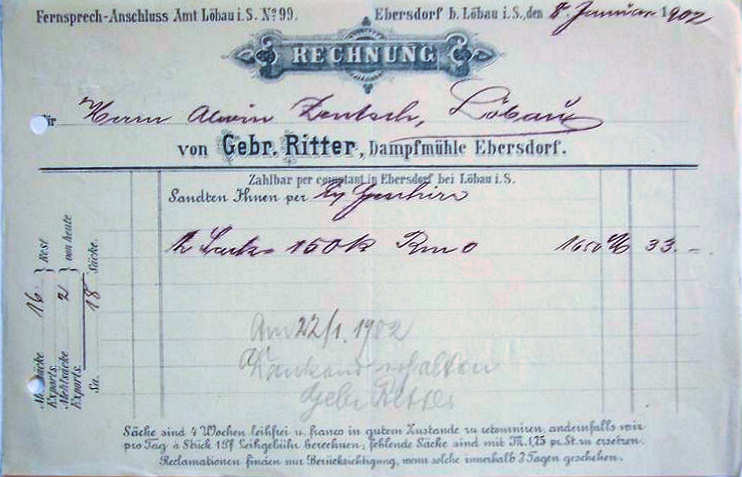 Fernsprech-Anschluss Amt Löbau i. S. No 99.
Ebersdorf b. Löbau i. S., den 8. Januar 1902
RECHNUNG
für Herrn Alwin Zentsch, Löbau
von Gebr. Ritter, Dampfmühle Ebersdorf.
Zahlbar per comptant in Ebersdorf bei Löbau i. S.
Sandten Ihnen per Geschirr
2 Sack 150 K 33.-
Rest 16
von heute 2
Säcke. 18
Mehlsäcke
Exports.
Mehlsäcke
Exports.
Sa.
Am 22/1. 1902
dankend erhalten
Gebr Ritter
Säcke sind 4 Wochen leihfrei u. franco in gutem Zustande zu retourniren, andernfalls wir
pro Tag u. Stück 1 Pf. Leihgebühr berechnen, fehlende Säcke sind mit M. 1,25 pr. St. zu ersetzen.
Reclamationen finden nur Berücksichtigung, wenn solche innerhalb 3 Tagen geschehen.